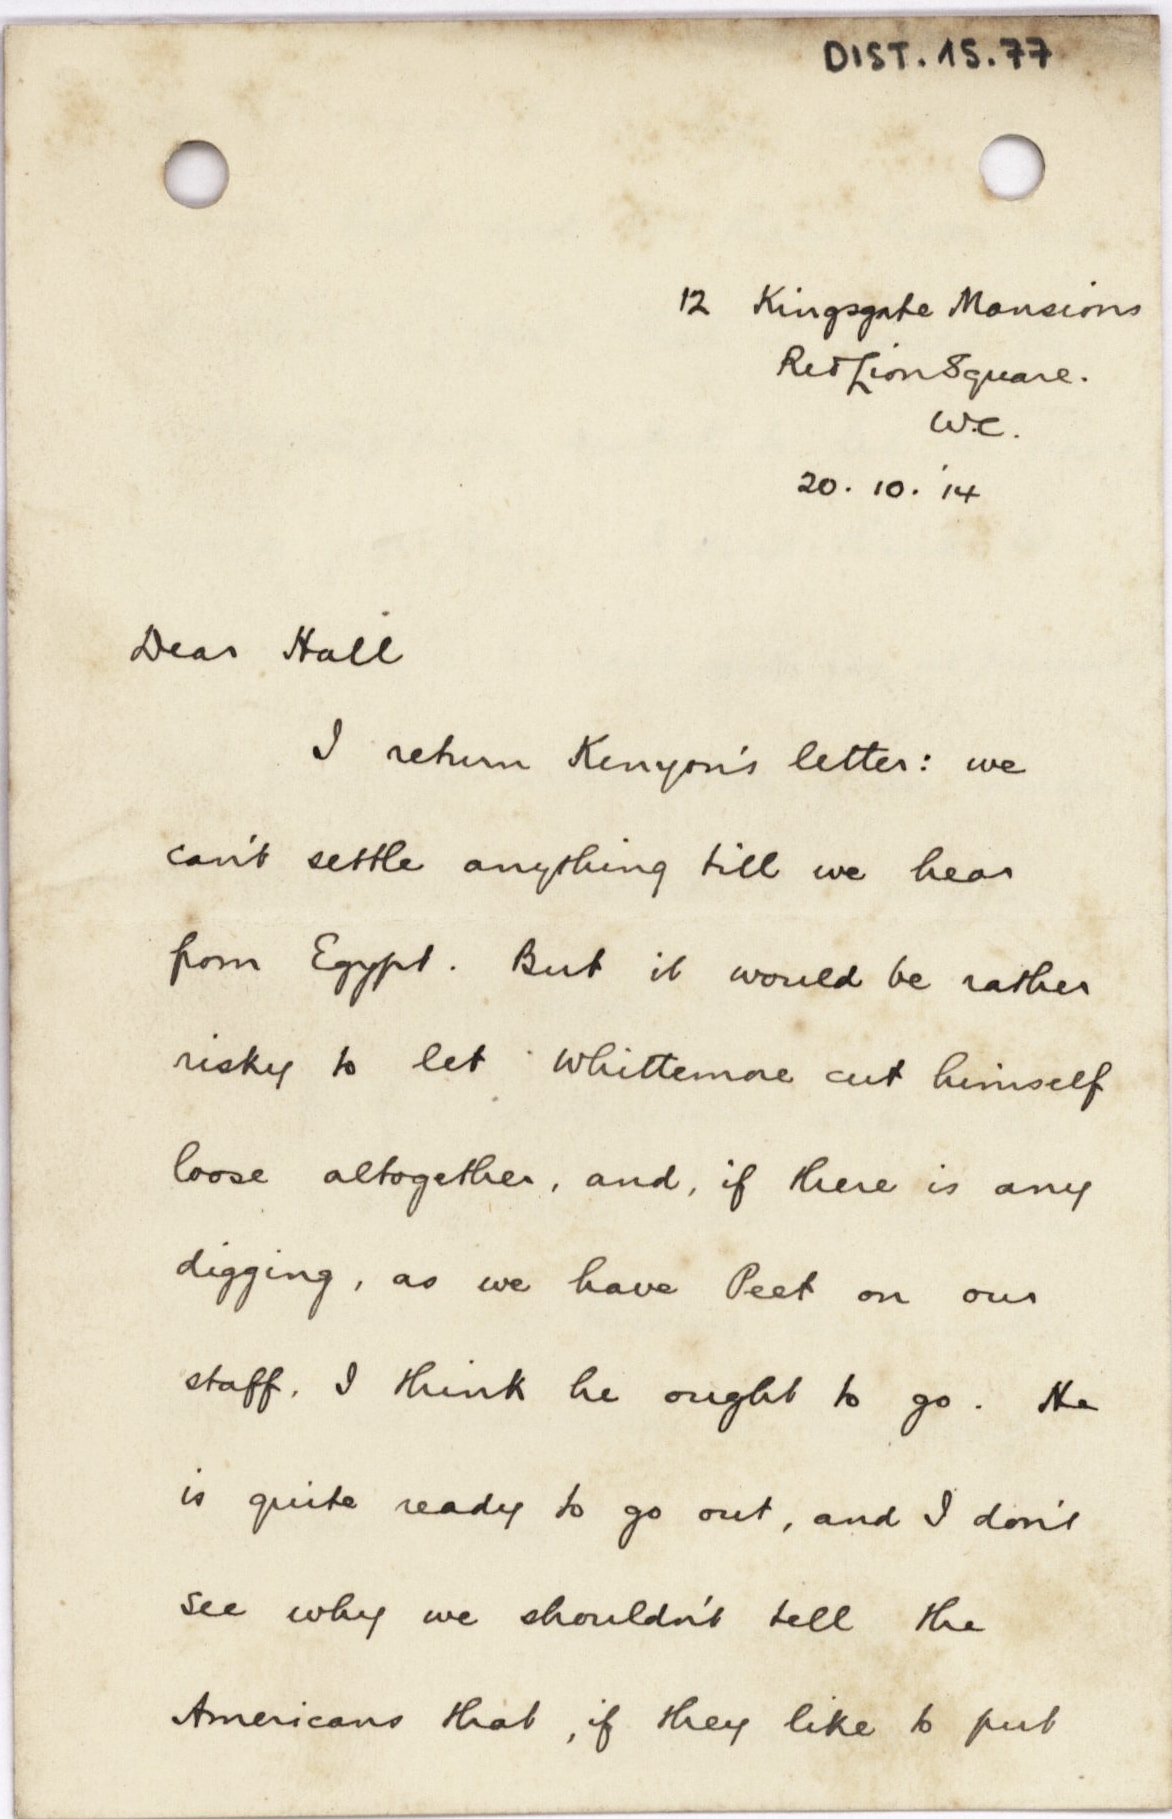 DIST.15.77
12 Kingsgate Mansions
Red Lion Square.
W.C.
20. 10. '14
Dear Hall
I return Kenyon's letter: we
can't settle anything till we hear
from Egypt. But it would be rather
risky to let Whittemore cut himself
loose altogether, and, if there is any
digging, as we have Peet on our
staff, I think he ought to go. He
is quite ready to go out, and I don't
see why we shouldn't tell the
Americans that, if they like to put